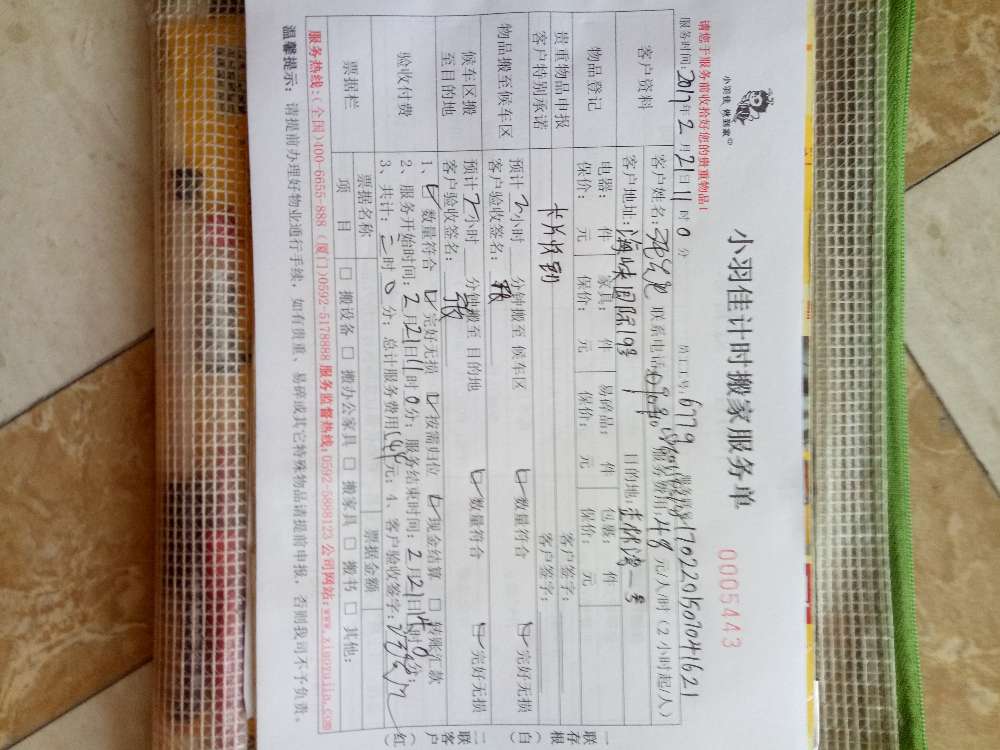 小羽佳 做到家
小羽佳计时搬家服务单
0005443
请您于服务前收拾好您的贵重物品!
服务时间:2017年2月21日11时0分 员工工号:6779 170220150704162
客户资料
客户姓名: 联系电话: 服务费用:48元/人/时(2小时起/人)
客户地址:海峡国际 目的地: 湾一号
物品登记
电器: 件 家具: 件 易碎品: 件 包装: 件
保价: 元 保价: 元 保价: 元 保价: 元
贵重物品申报
客户签字:
客户特别承诺
客户签字:
物品搬至候车区
预计2小时 分钟搬至 候车区 数量符合 完好无损
客户验收签名:
候车区搬至目的地
预计2小时 分钟搬至 目的地 数量符合 完好无损
客户验收签名:
验收付费
1、 数量符合 完好无损 按需归位 现金结算 □ 转账汇款
2、服务开始时间:2月21日11时0分;服务结束时间:2月21日14时0分;
3、共计:三时0分;总计服务费用 元;4、客户验收签字:
票据栏
票据名称 票据金额
项 目 □ 搬设备 □ 搬办公家具 □ 搬家具 □ 搬书 □ 其他:
服务热线:(全国)400-6655-888 (厦门)0592-5178888 服务监督热线:0592-5888123 公司网站:www.xiaoyujia.com
温馨提示:请提前办理好物业通行手续,如有贵重、易碎或其它特殊物品请提前申报,否则我司不予负责。
一联存根(白)
二联客户(红)